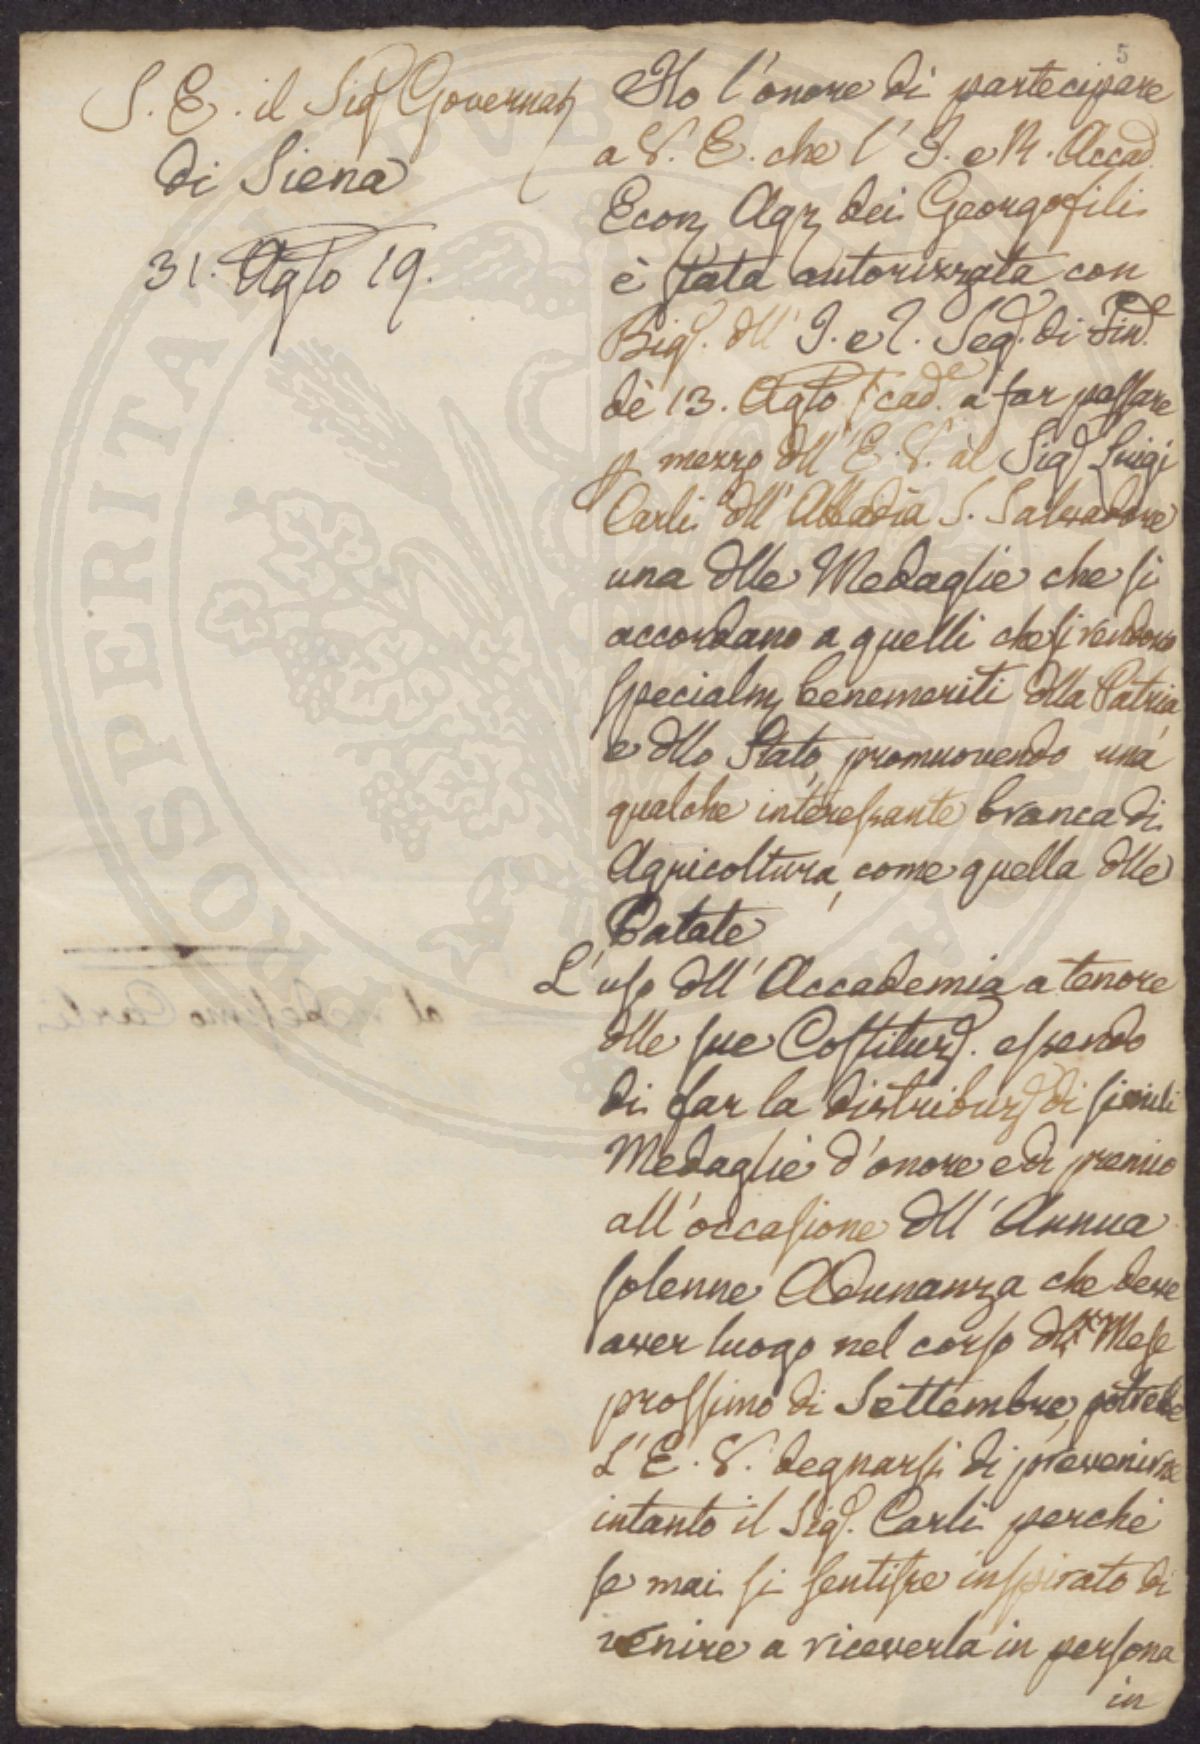 5
S. E. il Sigr Governatre
di Siena
31. Agto 19.
Ho l'onore di partecipare
a V. E. che l' I. e R. Accad.
Econ. Agr. dei Georgofili
è stata autorizzata con
Bigl. dll' I. e R. Seg. di Fin.
de 13. Agto scad. a far passare
p mezzo dll' E. V. al Sigr Luigi
Carli dll' Abbadia S. Salvadore
una dlle Medaglie che si
accordano a quelli che si rendono
specialm. benemeriti dlla Patria
e dllo Stato, promuovendo una
qualche interessante branca di
Agricoltura, come quella dlle
Patate
L'uso dll' Accademia a tenore
dlle sue Costituz. essendo
di far la distribuz. di simili
Medaglie d'onore e di premio
all'occasione dll' Annua
solenne Adunanza che deve
aver luogo nel corso dl Mese
prossimo di Settembre, potrebbe
L'E. V. degnarsi di prevenirne
intanto il Sigr. Carli perchè
se mai si sentisse inspirato di
venire a riceverla in persona
in
al medesimo Carli
PROSPERITATI PUBLICAE